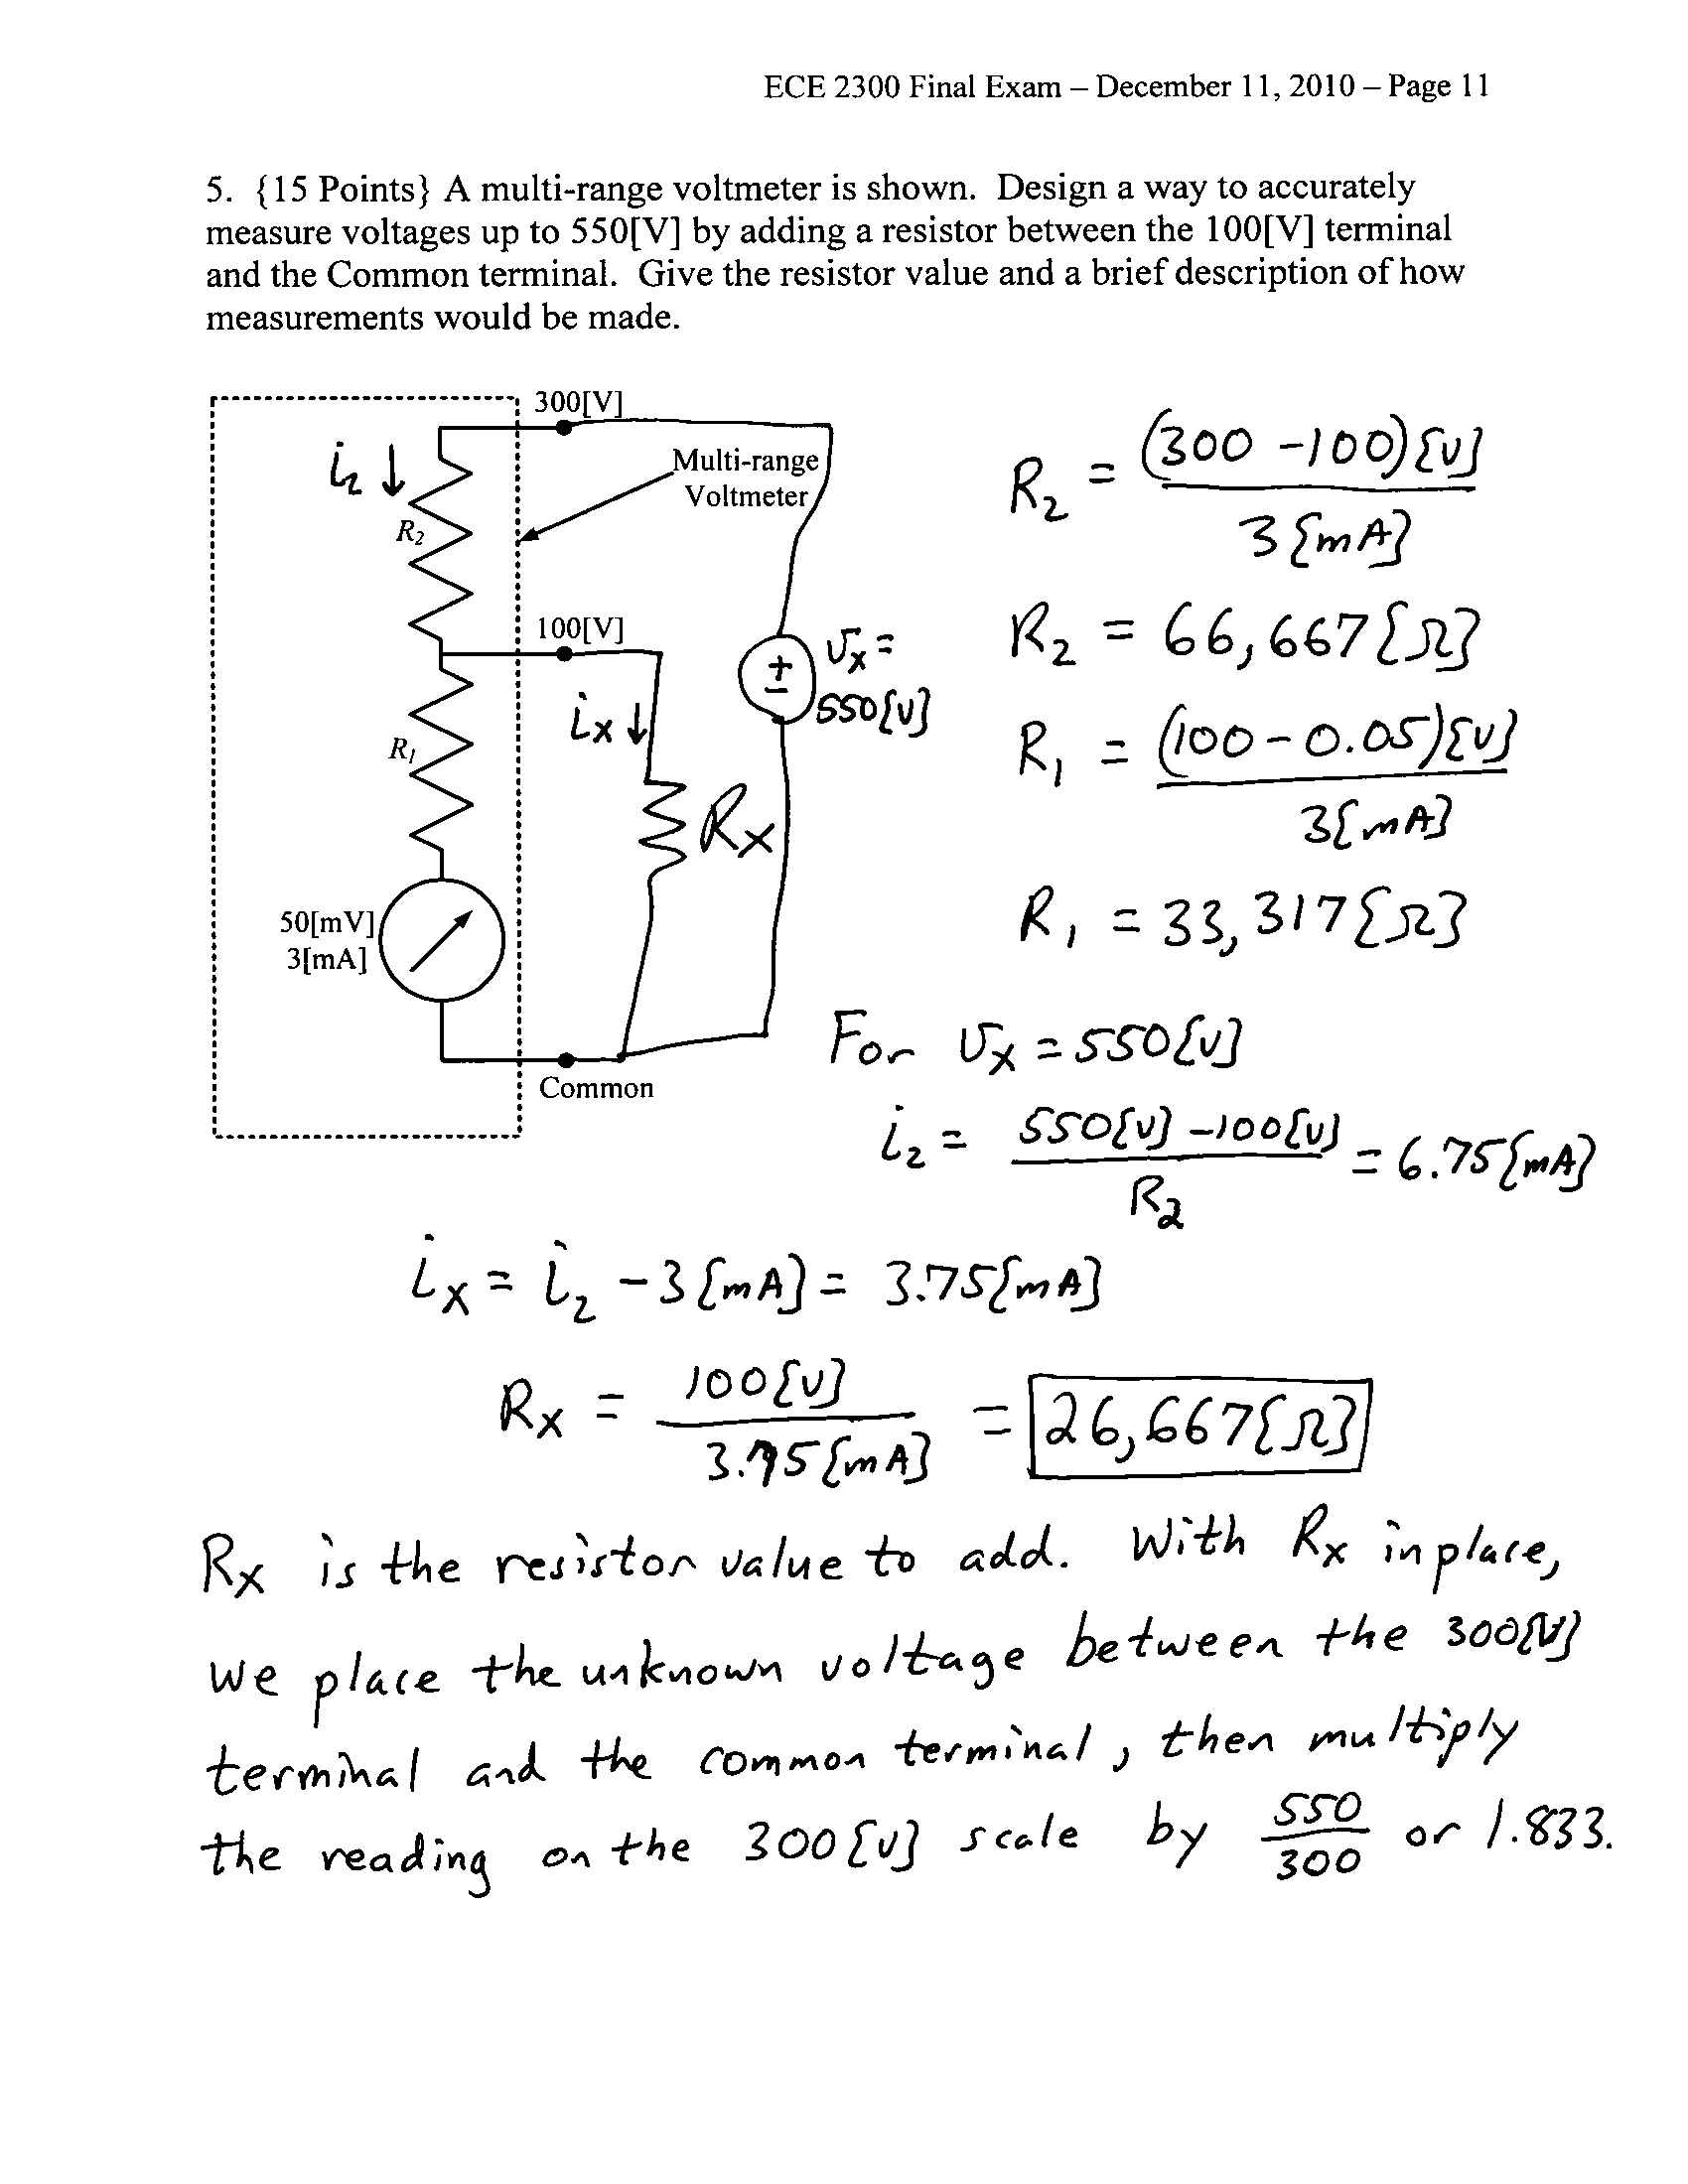 ECE 2300 Final Exam – December 11, 2010 – Page 11
5. {15 Points} A multi-range voltmeter is shown. Design a way to accurately
measure voltages up to 550[V] by adding a resistor between the 100[V] terminal
and the Common terminal. Give the resistor value and a brief description of how
measurements would be made.
300[V]
i₂ ↓
Multi-range
Voltmeter
R₂
100[V]
iₓ ↓
vₓ =
550[V]
R₁
Rₓ
50[mV]
3[mA]
Common
R₂ = (300 - 100)[V] / 3[mA]
R₂ = 66,667[Ω]
R₁ = (100 - 0.05)[V] / 3[mA]
R₁ = 33,317[Ω]
For vₓ = 550[V]
i₂ = 550[V] - 100[V] / R₂ = 6.75[mA]
iₓ = i₂ - 3[mA] = 3.75[mA]
Rₓ = 100[V] / 3.75[mA] = 26,667[Ω]
Rₓ is the resistor value to add. With Rₓ in place,
we place the unknown voltage between the 300[V]
terminal and the common terminal, then multiply
the reading on the 300[V] scale by 550/300 or 1.833.